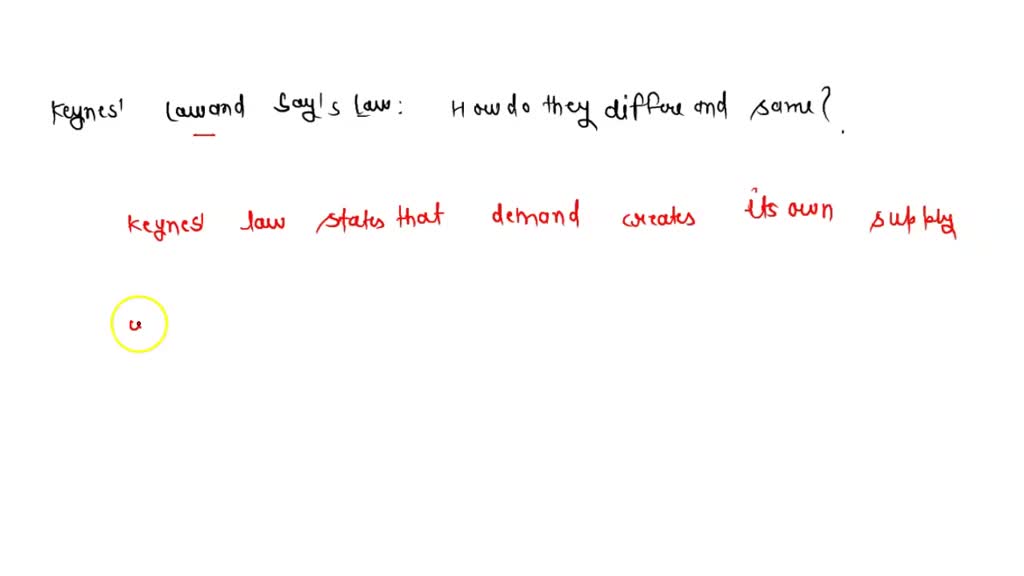 Keynes' Law and Say's Law: How do they differe and same?
Keynes' law states that demand creates its own supply